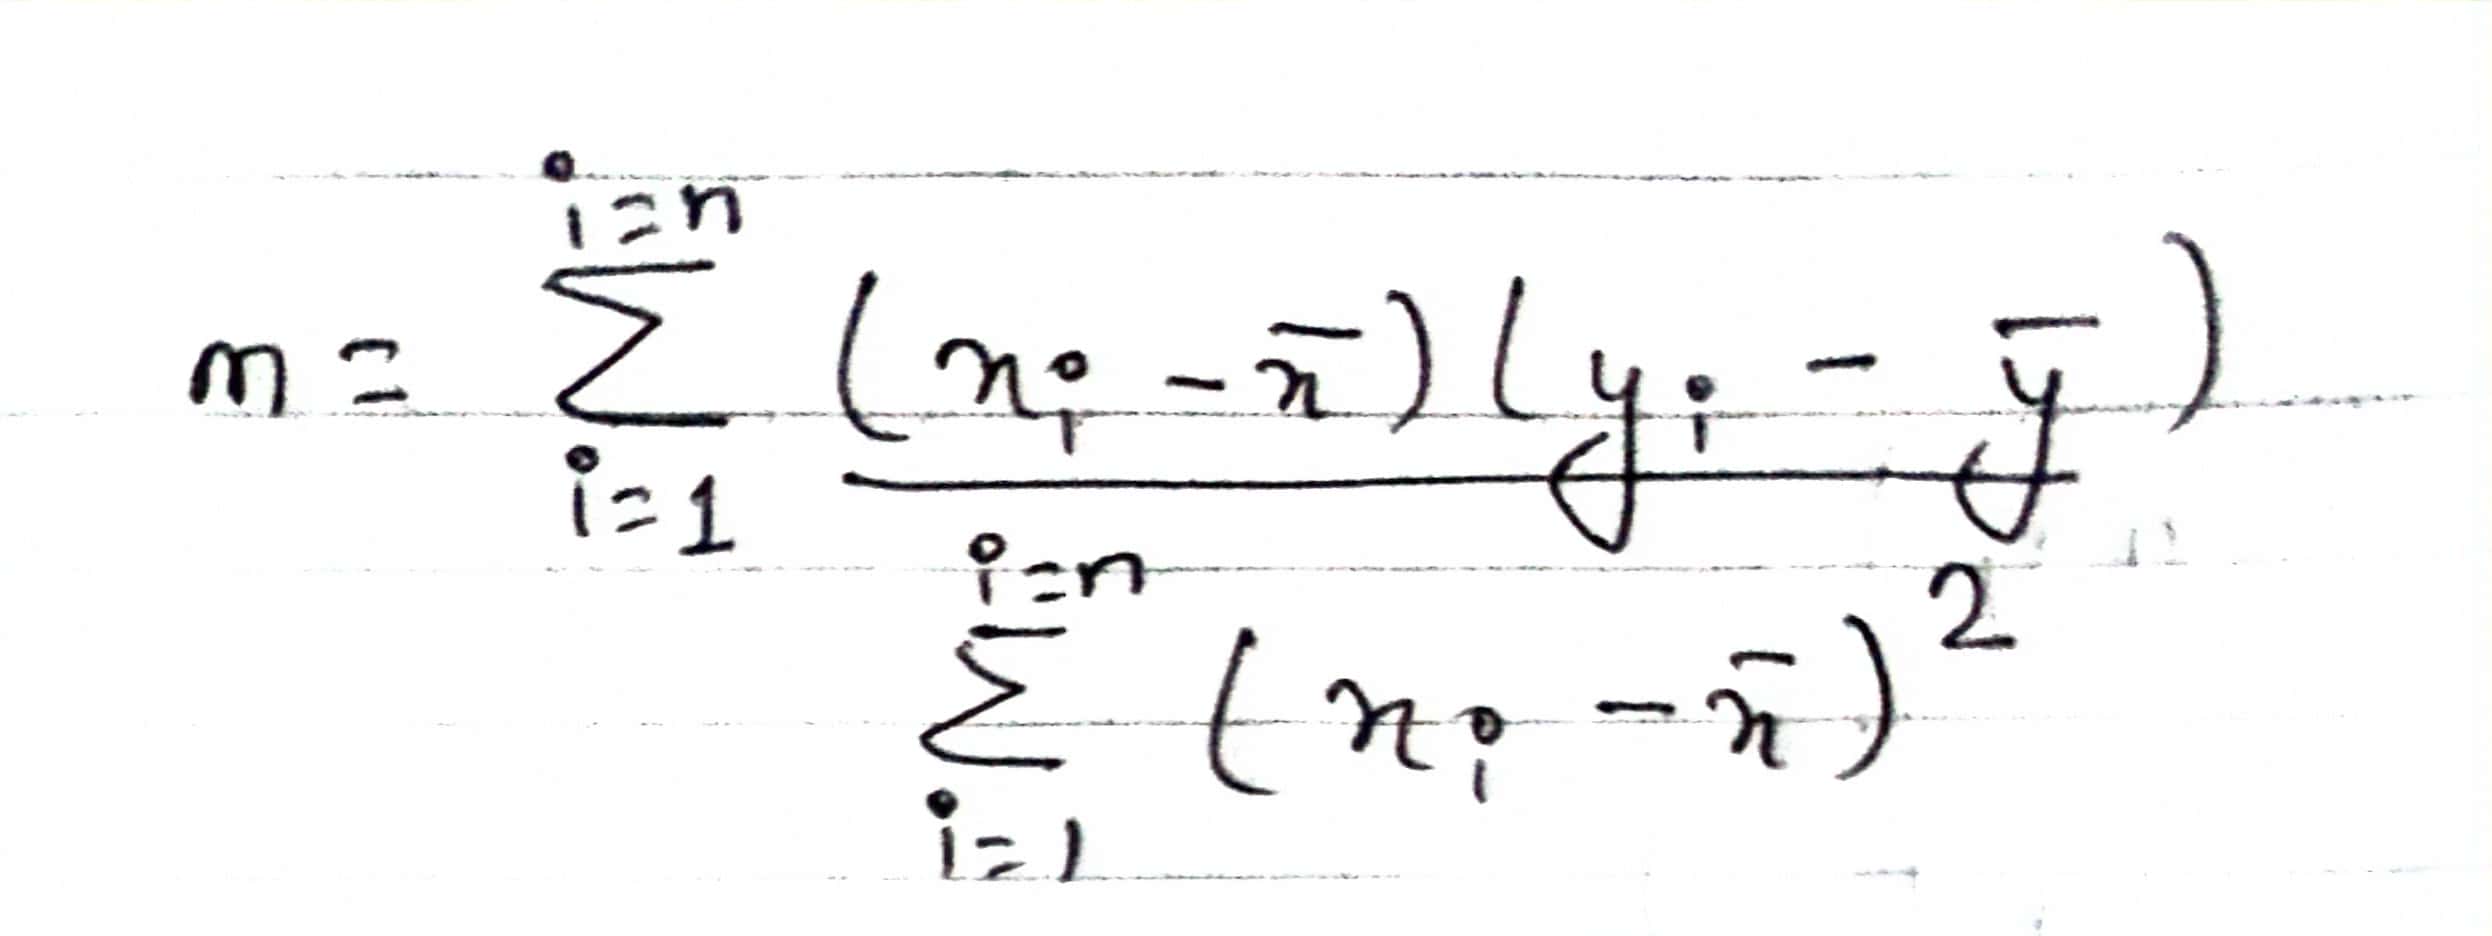 m = \sum_{i=1}^{i=n} \frac{(x_i - \bar{x})(y_i - \bar{y})}{\sum_{i=1}^{i=n} (x_i - \bar{x})^2}